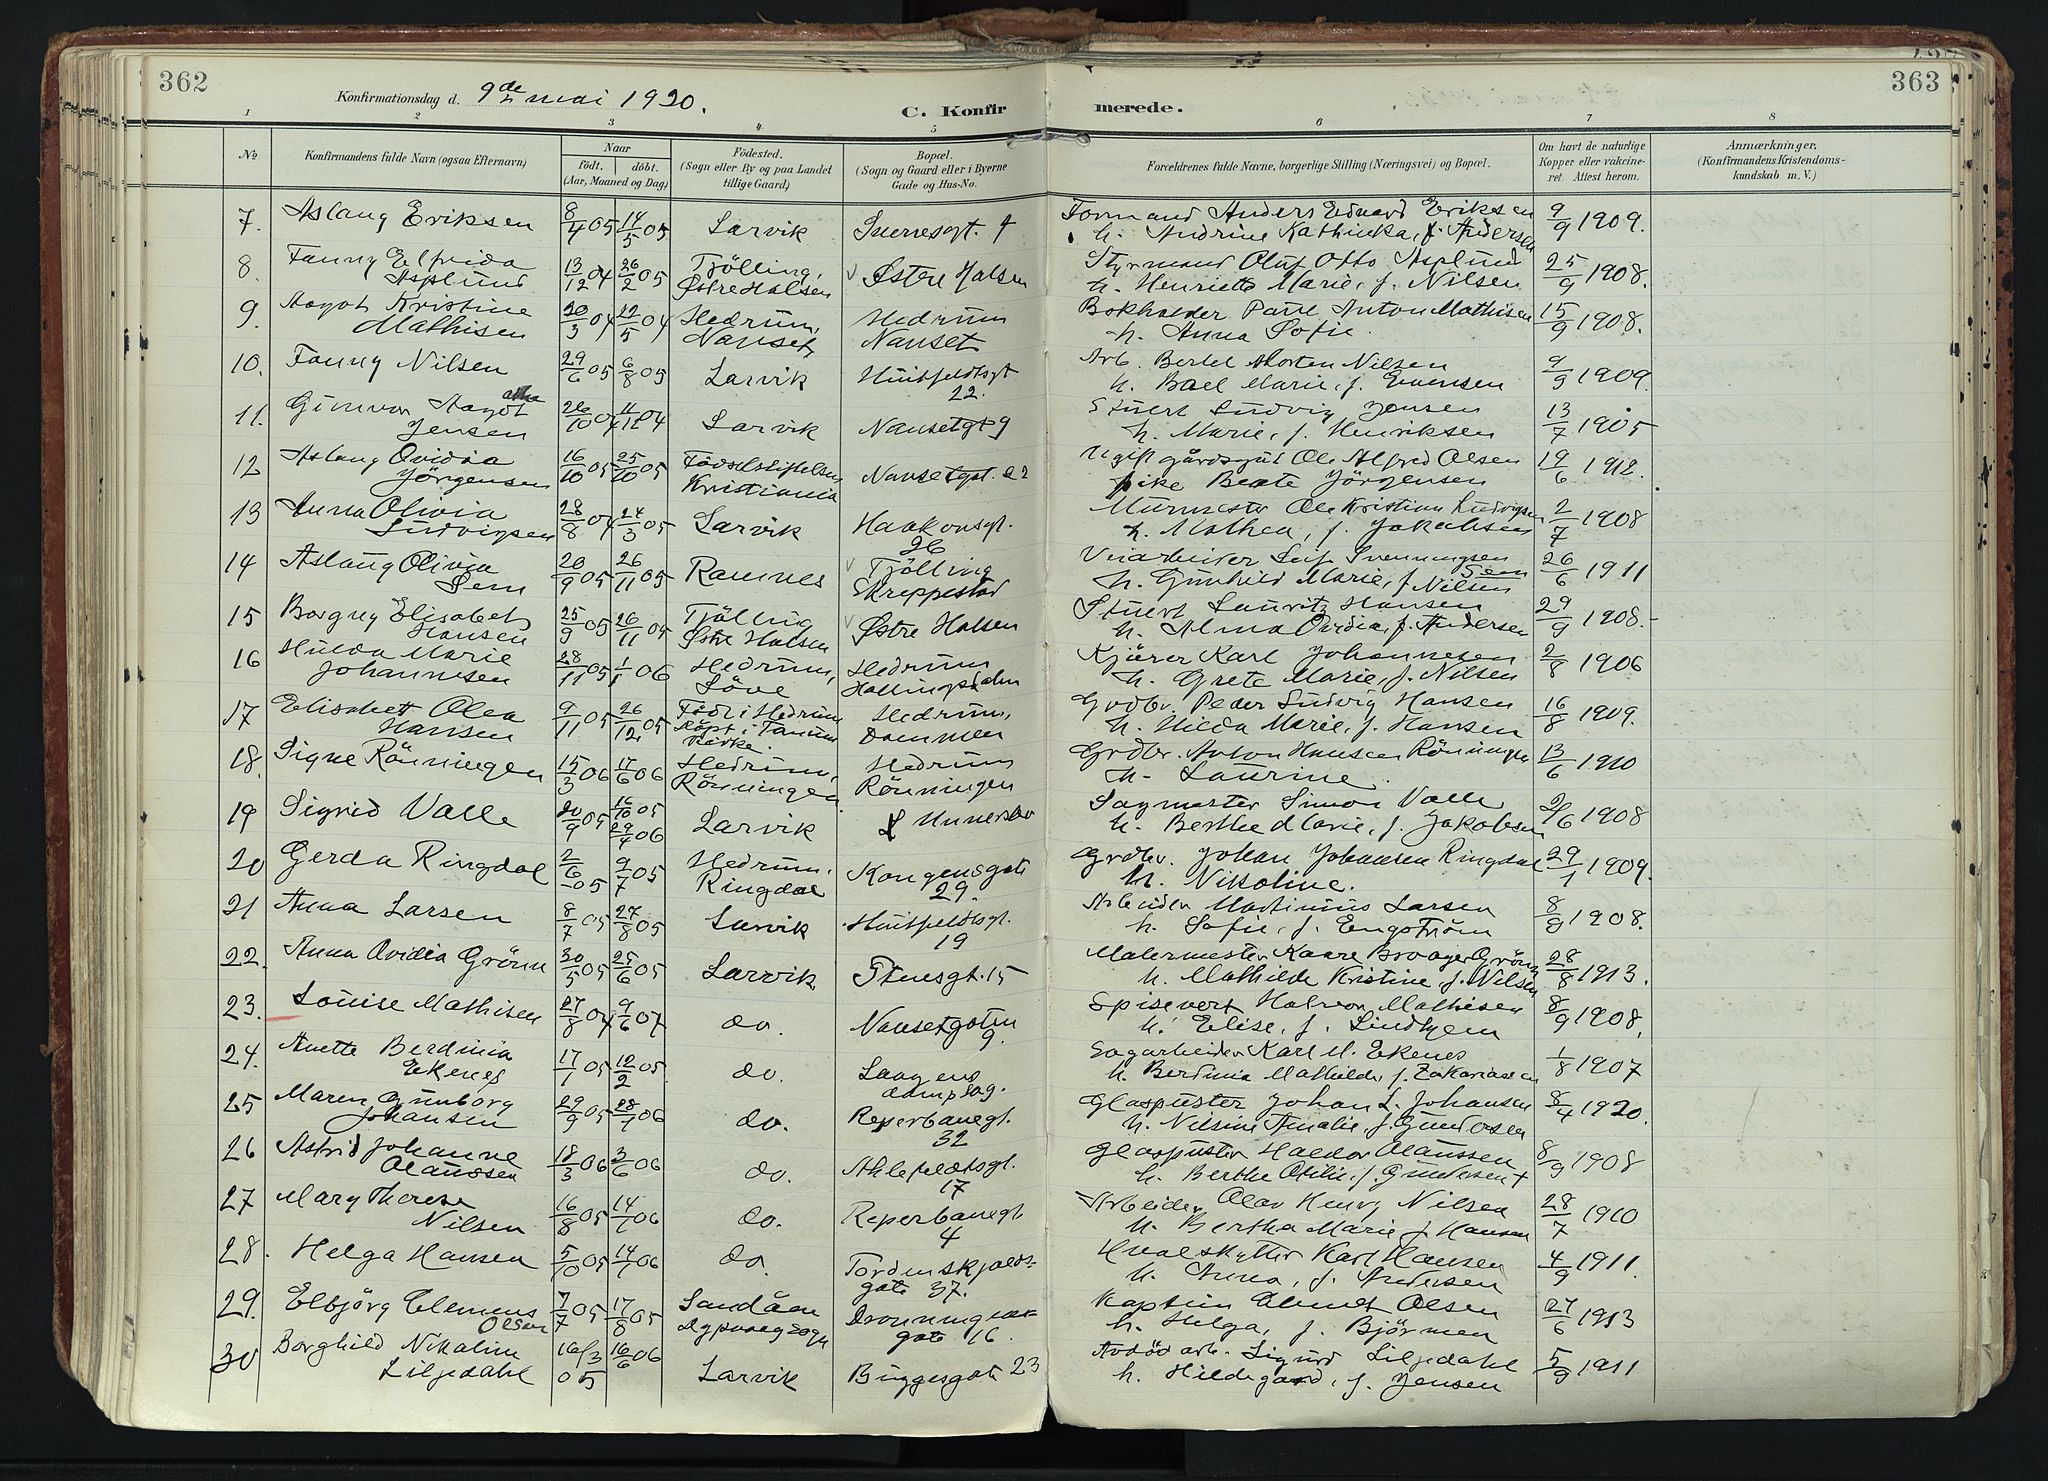 362
Konfirmationsdag d. 9de mai 1920.
C. Konfir
1 2 3 4 5
No
Konfirmandens fulde Navn (ogsaa Efternavn)
Naar
födt. döbt.
(Aar, Maaned og Dag)
Födested.
(Sogn eller By og paa Landet
tillige Gaard)
Bopæl.
(Sogn og Gaard eller i Byerne
Gade og Hus-No.
363
merede.
6 7 8
Forældrenes fulde Navne, borgerlige Stilling (Næringsvei) og Bopæl.
Om havt de naturlige
Kopper eller vakcine-
ret. Attest herom.
Anmærkninger.
(Konfirmandens Kristendoms-
kundskab m. V.)
7. Aslaug Eriksen 8/4 05 14/5 05 Larvik Formand Anders Edvard Eriksen 9/9 1909.
h. Andrine Kathinka, f. Andersen
8. Fanny Elfrida 13/12 04 26/2 05 Tjölling, Østre Halsen Styrmand Oluf Otto Asplund 25/9 1908.
Asplund Østre Halsen h. Henriette Marie, f. Nilsen
9. Aagot Kristine 20/3 04 22/5 04 Hedrum, Hedrum Bokholder Paul Anton Mathisen 15/9 1908.
Mathisen Nanset Nanset h. Anna Sofie.
10. Fanny Nilsen 29/6 05 6/8 05 Larvik Huitfeldtsgt Arb. Bertel Morten Nilsen 9/9 1909.
22. h. Marie, f. Evensen
11. Gunvor Aagot 26/10 04 Larvik Nansetgt 9 Stuert Ludvig Jensen 13/7 1905
Jensen h. Marie, f. Henriksen
12 Aslaug Ovidia 16/10 05 25/10 05 Födselsstiftelsen Nansetgt. 22 Ugift gårdsgut Ole Alfred Olsen 19/6 1912.
Jörgensen Kristiania pike Beate Jörgensen
13 Anna Olivia 28/8 04 24/3 05 Larvik Haakonsgt. Murmester Ole Kristian Ludvigsen 2/7 1908
Ludvigsen 26 h. Mathea, f. Jakobsen
14 Aslaug Olivia 20/9 05 26/11 05 Ramnes Tjölling Leif Svenningsen 26/6 1911
Sem Skreppestad h. Gunhild Marie, f. Nilsen Sem
15 Borgny Elisabet 25/9 05 26/11 05 Tjölling Østre Halsen Stuert Lauritz Hansen 29/9 1908.
Hansen Østre Halsen h. Alma Ovidia, f. Andersen
16 Hulda Marie 28/11 05 1/1 06 Hedrum, Hedrum Kjürer Karl Johannesen 2/8 1906
Johannesen Löve h. Grete Marie, f. Nilsen
17 Elisabett Olea 9/11 05 26/12 05 Född i Hedrum Hedrum, Grdbr. Peder Ludvig Hansen 16/8 1909.
Hansen döpt i Tanum Kirke. Dammen h. Hilda Marie, f. Hansen
18. Signe Rönningen 15/3 06 17/6 06 Hedrum, Hedrum Grdbr. Anton Hansen Rönningen 13/6 1910
Rönningen Rönningen h. Laurine
19 Sigrid Valle 20/9 05 16/10 05 Larvik Sagmester Simon Valle 1908
29/4 06 h. Berthe Marie, f. Jakobsen
20 Gerda Ringdal 2/6 05 9/7 05 Hedrum, Kongensgate Grdbr. Johan Johansen Ringdal 29/1 1909.
Ringdal 29. h. Nikoline.
21 Anna Larsen 8/7 05 27/8 05 Larvik Huitfeldtsgt. Arbeider Martinius Larsen 8/9 1908.
19 h. Sofie, f. Engström
22. Anna Ovidia Grönn 30/5 05 25/6 05 Larvik Stensgt. 15 Malermester Kaare Brager Grönn 28/8 1913.
h. Mathilde Kristine f. Nilsen
23. Louise Mathisen 27/8 04 9/6 07 do. Nansetgaten Spisevert Halvor Mathisen 8/9 1908,
9. h. Elise, f. Lindhjem
24. Anette Berdinia 17/1 05 12/2 05. do. Laagens Sagarbeider Karl M. Ekenes 1/8 1907
Ekenes dampsag. h. Berdinia Mathilde, f. Zakariasen
25 Maren Gunborg 29/9 05 28/1 06 do. Reperbanegt. Glaspuster Johan L. Johansen 8/4 1920.
Johansen 32 h. Nilsine Amalie, f. Gundersen
26 Astrid Johanne 18/3 06 3/6 06 do. Ahlefeldtsgt. Glaspuster Haldor Olaussen 8/9 1908
Olaussen 17 h. Berthe Otilie, f. Gundersen +
27 Mary Therese 16/8 05 14/1 06 do. Reperbanegt Arbeider Olav Henry Nilsen 28/7 1910
Nilsen 4 h. Bertha Marie f. Hansen
28. Helga Hansen 5/10 05 14/1 06 do. Tordenskjolds- Hvalskytter Karl Hansen 4/9 1911.
gate 37. h. Anna, f. Andersen
29. Elbjörg Clemens 7/7 05 17/8 05 Sandåen Dronningens- Kaptein Olsen 27/6 1913
Olsen Dypvaag sogn gate 16. h. Helga, f. Björmen
30 Borghild Nikoline 16/3 05 16/6 06 Larvik Buggesgate 23 Avdöd arb. Sigurd Liljedahl 5/9 1911
Liljedahl h. Hildegard, f. Jensen